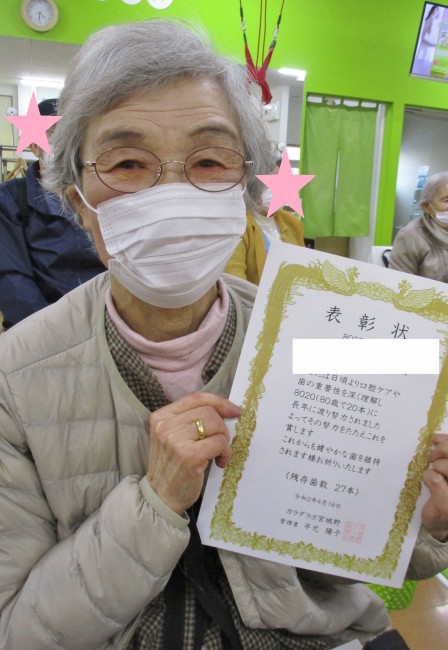 表彰状
は日頃より口腔ケアや
歯の重要性を深く理解し
8020(80歳で20本)に
長年に渡り努力されました
よってその努力をたたえこれを
賞します
これからも健やかな歯を維持
されます様お祈りいたします
〈残存歯数 27本〉
令和2年4月18日
カラダラボ宮城野
管理者 平元 陽子